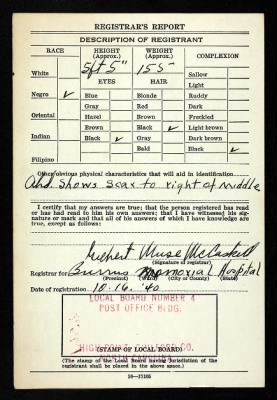 REGISTRAR'S REPORT
DESCRIPTION OF REGISTRANT
RACE HEIGHT (Approx.) WEIGHT (Approx.) COMPLEXION
5ft 5" 155
White Sallow
EYES HAIR Light
Negro ✓ Blue Blonde Ruddy
Gray Red Dark
Oriental Hazel Brown Freckled
Brown Black ✓ Light brown
Indian Black ✓ Gray Dark brown
Bald Black ✓
Filipino
Other obvious physical characteristics that will aid in identification
Abd. Shows Scar to right of Middle
I certify that my answers are true; that the person registered has read
or has had read to him his own answers; that I have witnessed his sig-
nature or mark and that all of his answers of which I have knowledge are
true, except as follows:
Muse McCaskill
(Signature of registrar)
Registrar for Burrus Memorial Hospital
(Precinct) (Ward) (City or County) (State)
Date of registration 10-16-'40
LOCAL BOARD NUMBER 4
POST OFFICE BLDG.
HIGH POINT, GUILFORD CO.
NORTH CAROLINA
(STAMP OF LOCAL BOARD)
(The stamp of the Local Board having jurisdiction of the
registrant shall be placed in the above space.)
16—17105